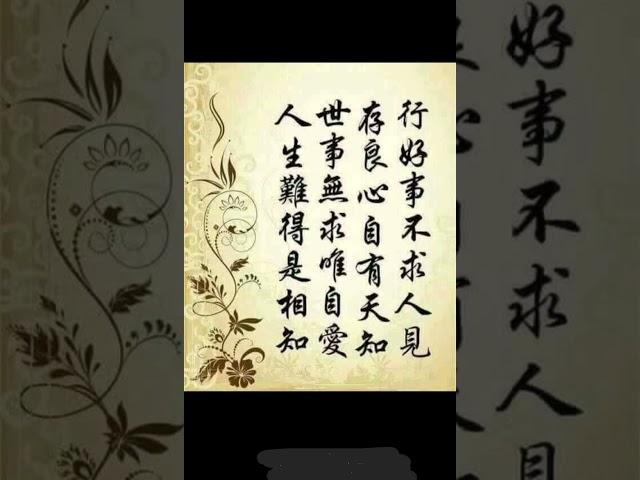 行好事不求人見
存良心自有天知
世事無求唯自愛
人生難得是相知